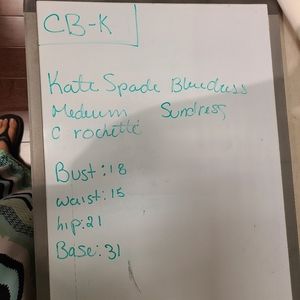 CB-K
Kate Spade Bluedress
Medium Sundress,
Crochette
Bust: 18
waist: 15
hip: 21
Base: 31